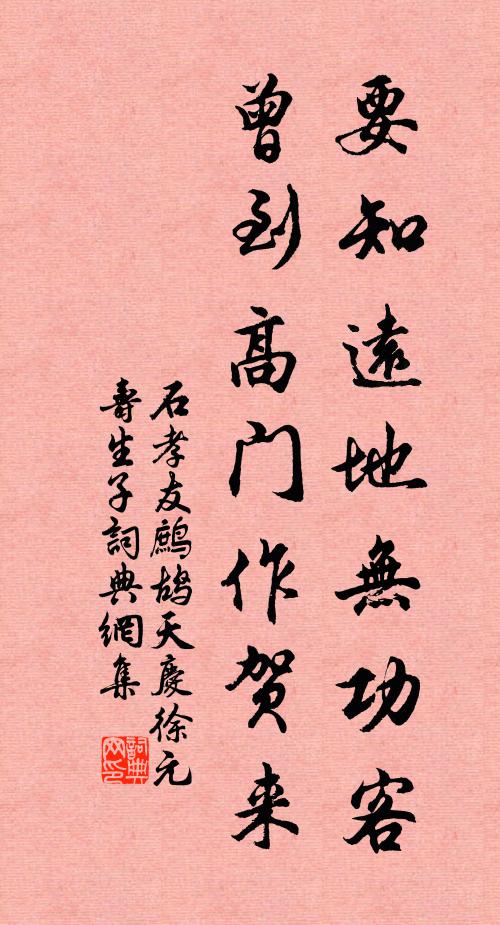 要知遠地無功客
曾到高门作贺来
石孝友鷓鴣天慶徐元
壽生子詞典網集
詞典网印